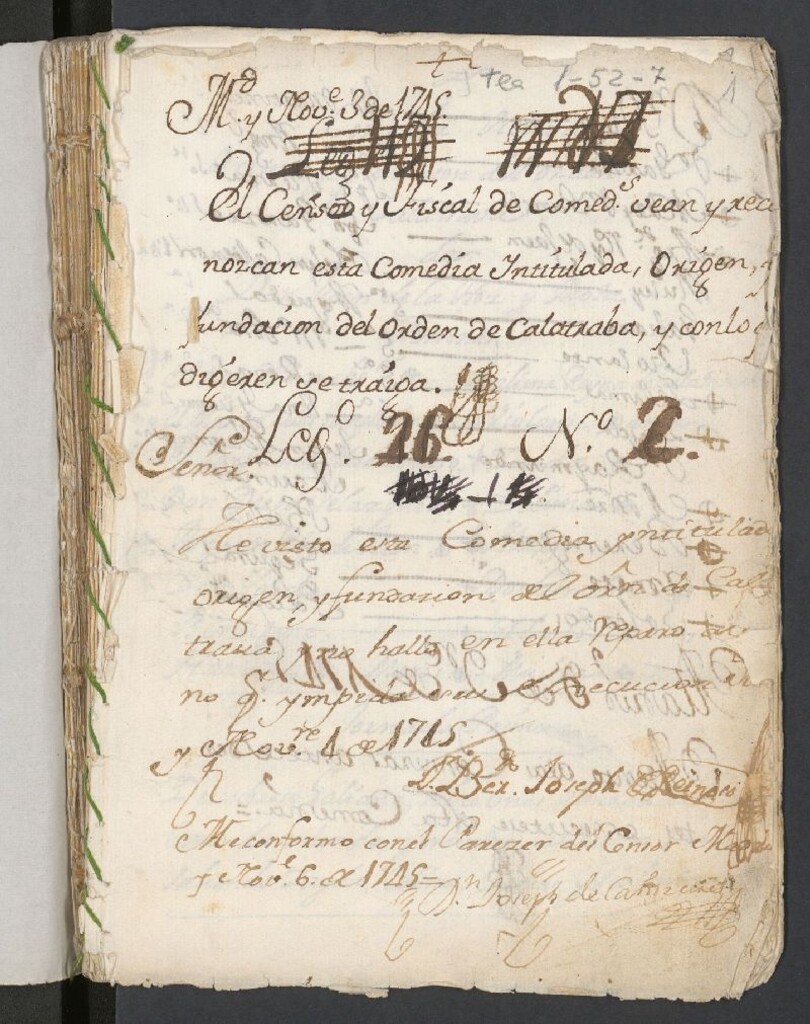 Tea 1-52-7
M.d y Nov.e 3 de 1715.
El Censor y Fiscal de Comed.s vean y reco
nozcan esta Comedia Intitulada, Origen, y
fundacion del Orden de Calatraba, y con lo q
digeren se traiga.
Leg.o 26. N.o 2.
Señor.
He visto esta Comedia yntitulad
origen, y fundacion del orn de Cala
traua y no hallo en ella reparo
no q.e ympida su execucion
y Nov.re 4 de 1715
D. Ber.do Joseph de Reinoso
Me conformo con el Parezer del Censor M
y Nov.e 6. de 1715=
D.n Joseph de Cañizares